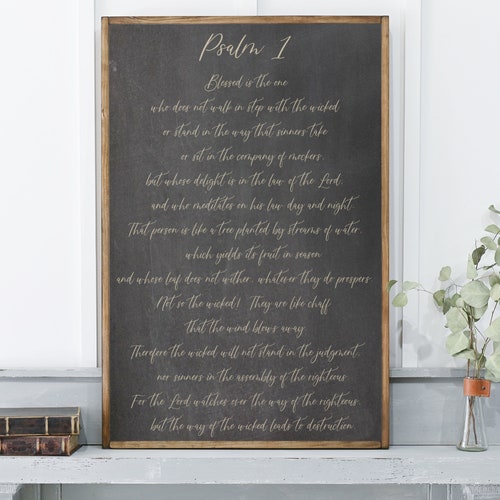 Psalm 1
Blessed is the one
who does not walk in step with the wicked
or stand in the way that sinners take
or sit in the company of mockers,
but whose delight is in the law of the Lord,
and who meditates on his law day and night.
That person is like a tree planted by streams of water,
which yields its fruit in season
and whose leaf does not wither, whatever they do prospers.
Not so the wicked! They are like chaff
that the wind blows away.
Therefore the wicked will not stand in the judgment,
nor sinners in the assembly of the righteous.
For the Lord watches over the way of the righteous,
but the way of the wicked leads to destruction.